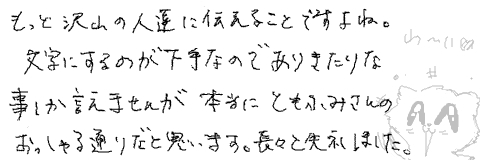 もっと沢山の人達に伝えることですよね。
文字にするのが下手なのでありきたりな
事しか言えませんが 本当に ともふみさんの
おっしゃる通りだと思います。長々と失礼しました。